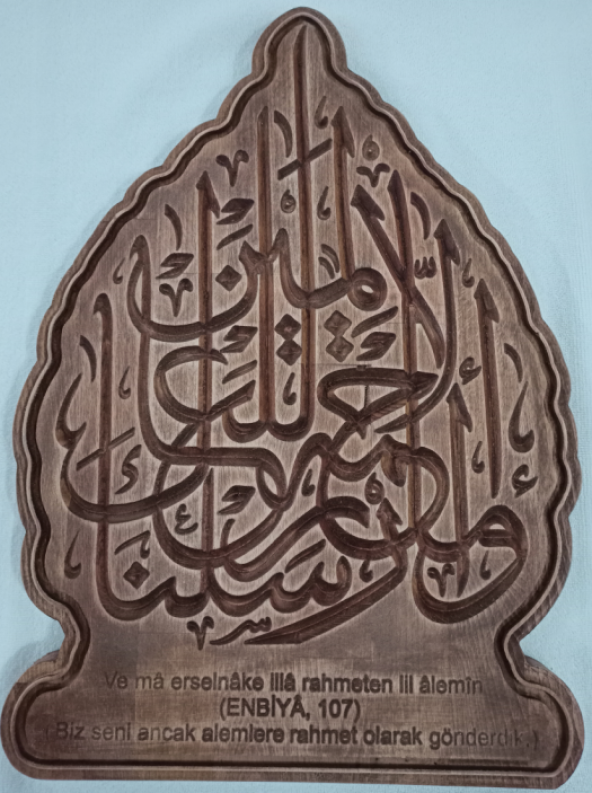 وما أرسلناك إلا رحمة للعالمين
Ve mâ erselnâke illâ rahmeten lil âlemîn
(ENBİYÂ, 107)
(Biz seni ancak alemlere rahmet olarak gönderdik.)